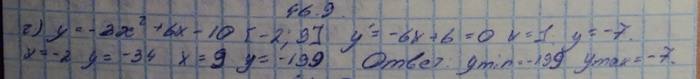 46.9.
г) y = -3x² + 6x - 10 [-2; 9] y' = -6x + 6 = 0 x = 1 y = -7.
x = -2 y = -34 x = 9 y = -199 Ответ: ymin = -199 ymax = -7.